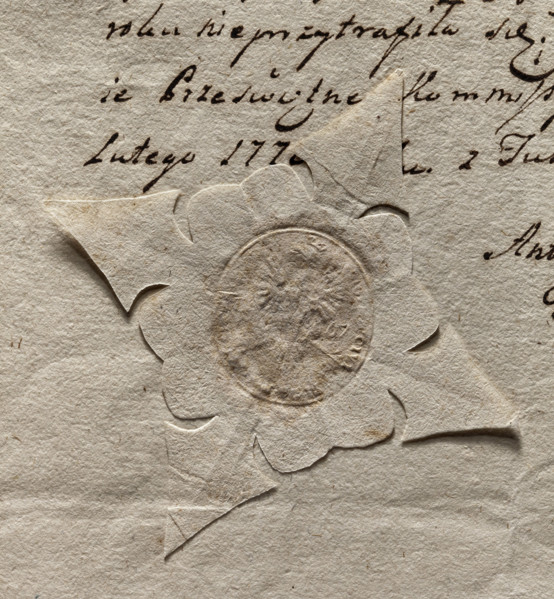 roku nieprzytrafiła się.
ie Prześwytne Kommiss
Lutego 177 z
Ant